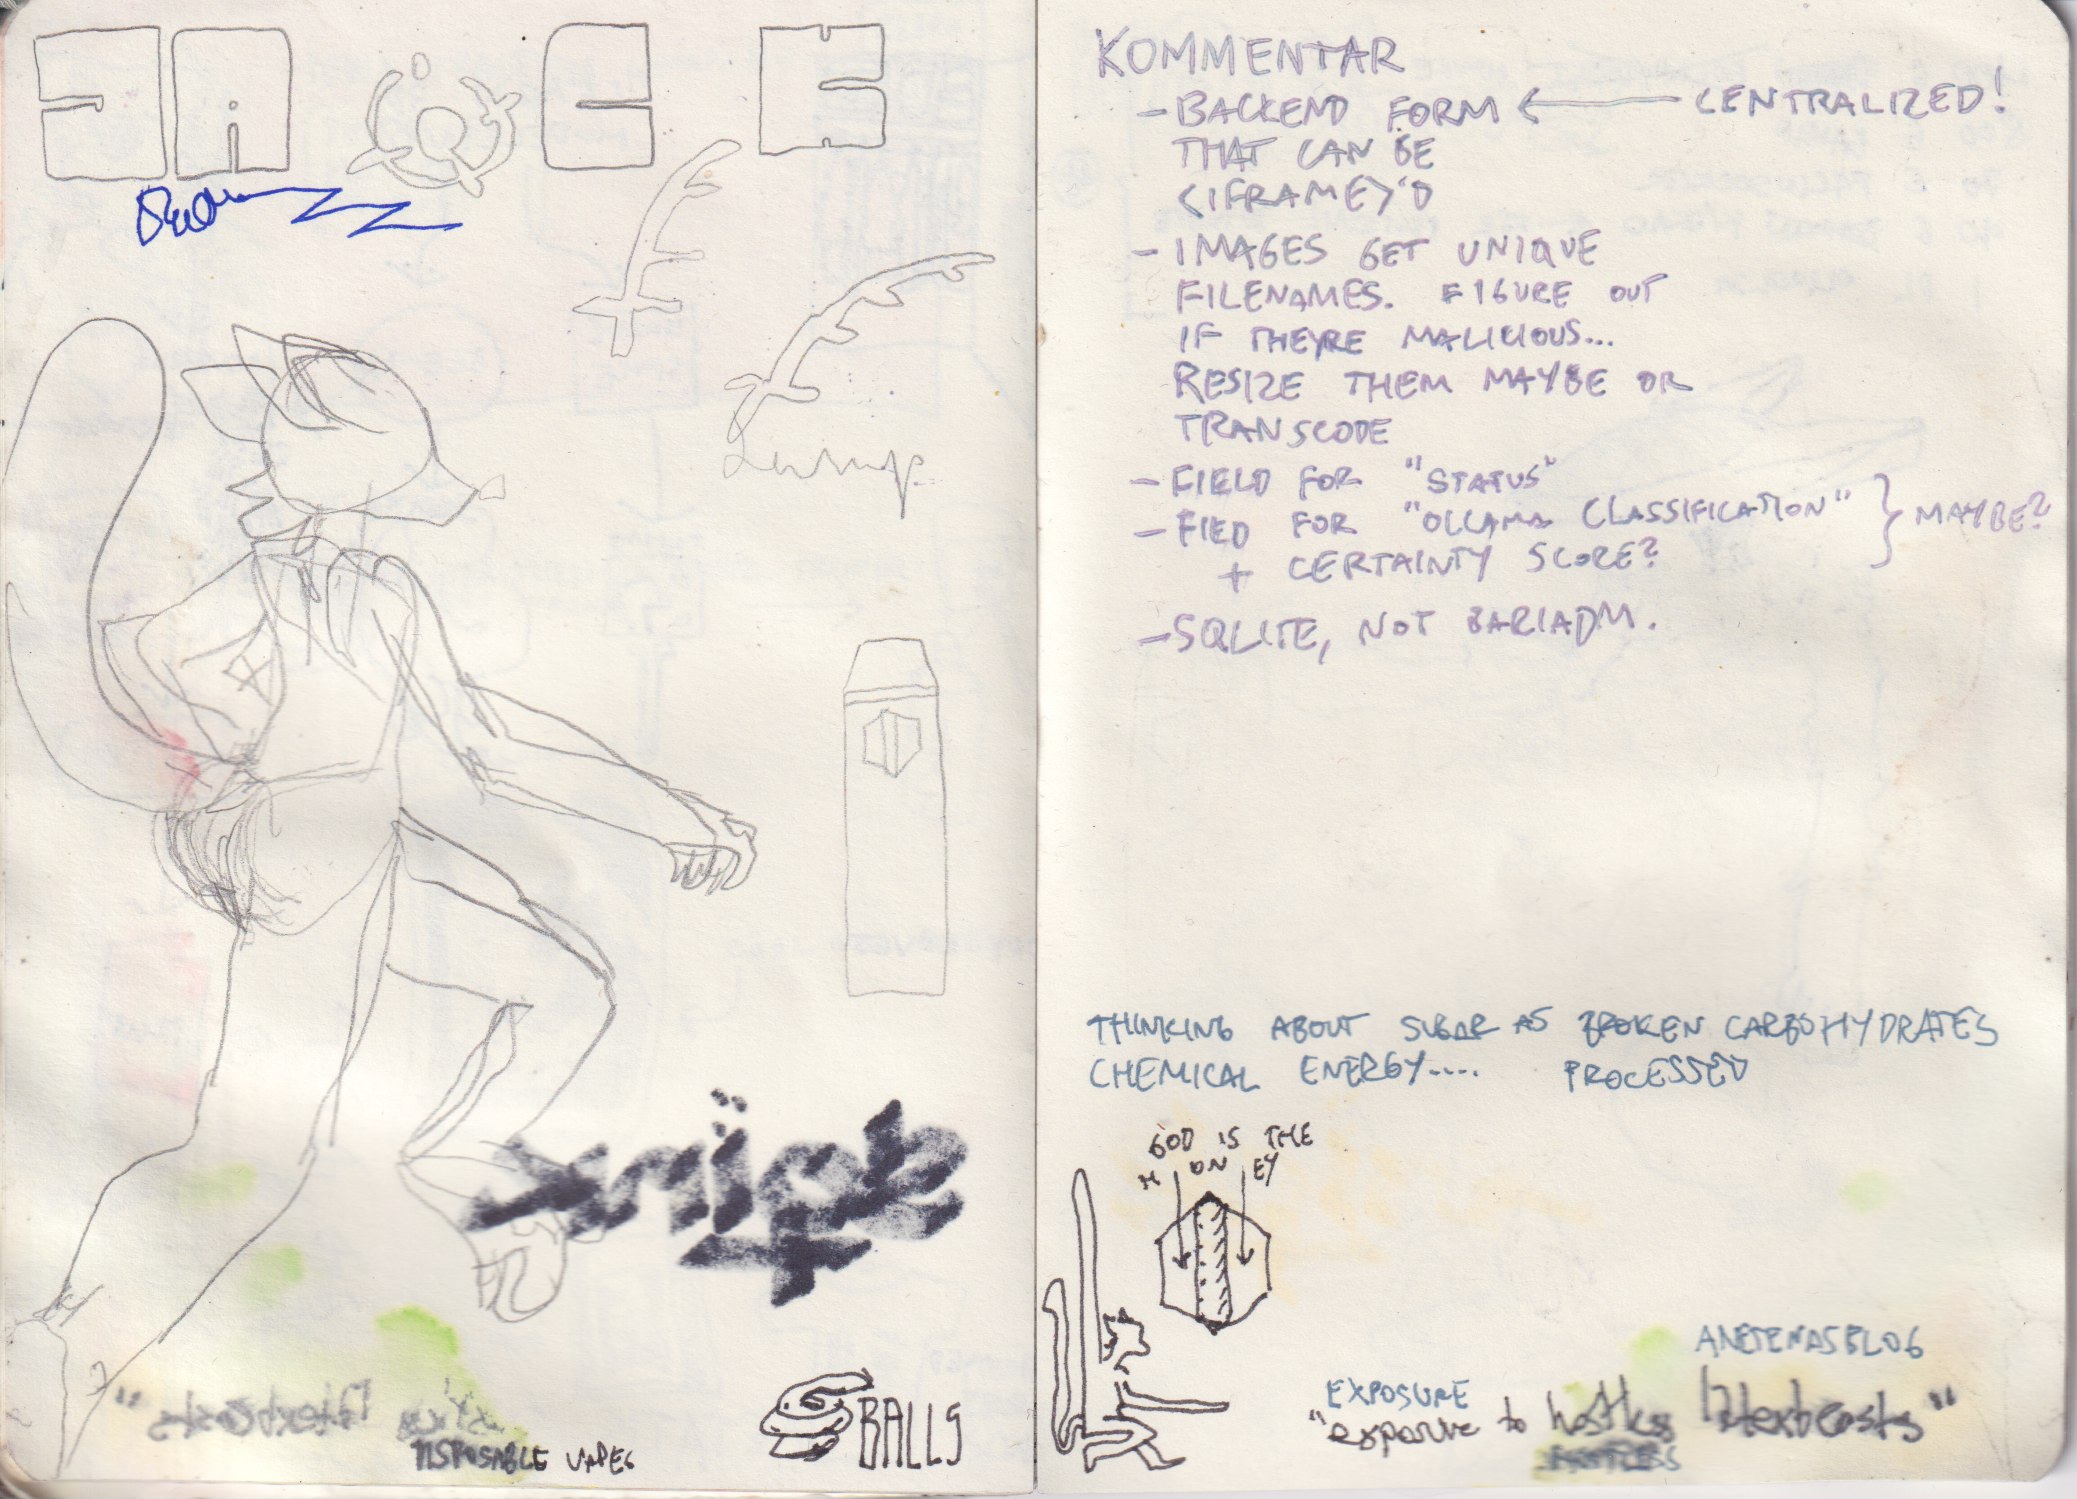 JA CE
DISPOSABLE VAPES
BALLS
KOMMENTAR
- BACKEND FORM ← CENTRALIZED!
THAT CAN BE
<IFRAME>'D
- IMAGES GET UNIQUE
FILENAMES. FIGURE OUT
IF THEYRE MALICIOUS...
RESIZE THEM MAYBE OR
TRANSCODE
- FIELD FOR "STATUS"
- FIED FOR "OLLAMA CLASSIFICATION" } MAYBE?
+ CERTAINTY SCORE?
- SQLITE, NOT BARIADM.
THINKING ABOUT SUGAR AS BROKEN CARBOHYDRATES
CHEMICAL ENERGY.... PROCESSED
GOD IS THE
H ON EY
EXPOSURE
"exposure to